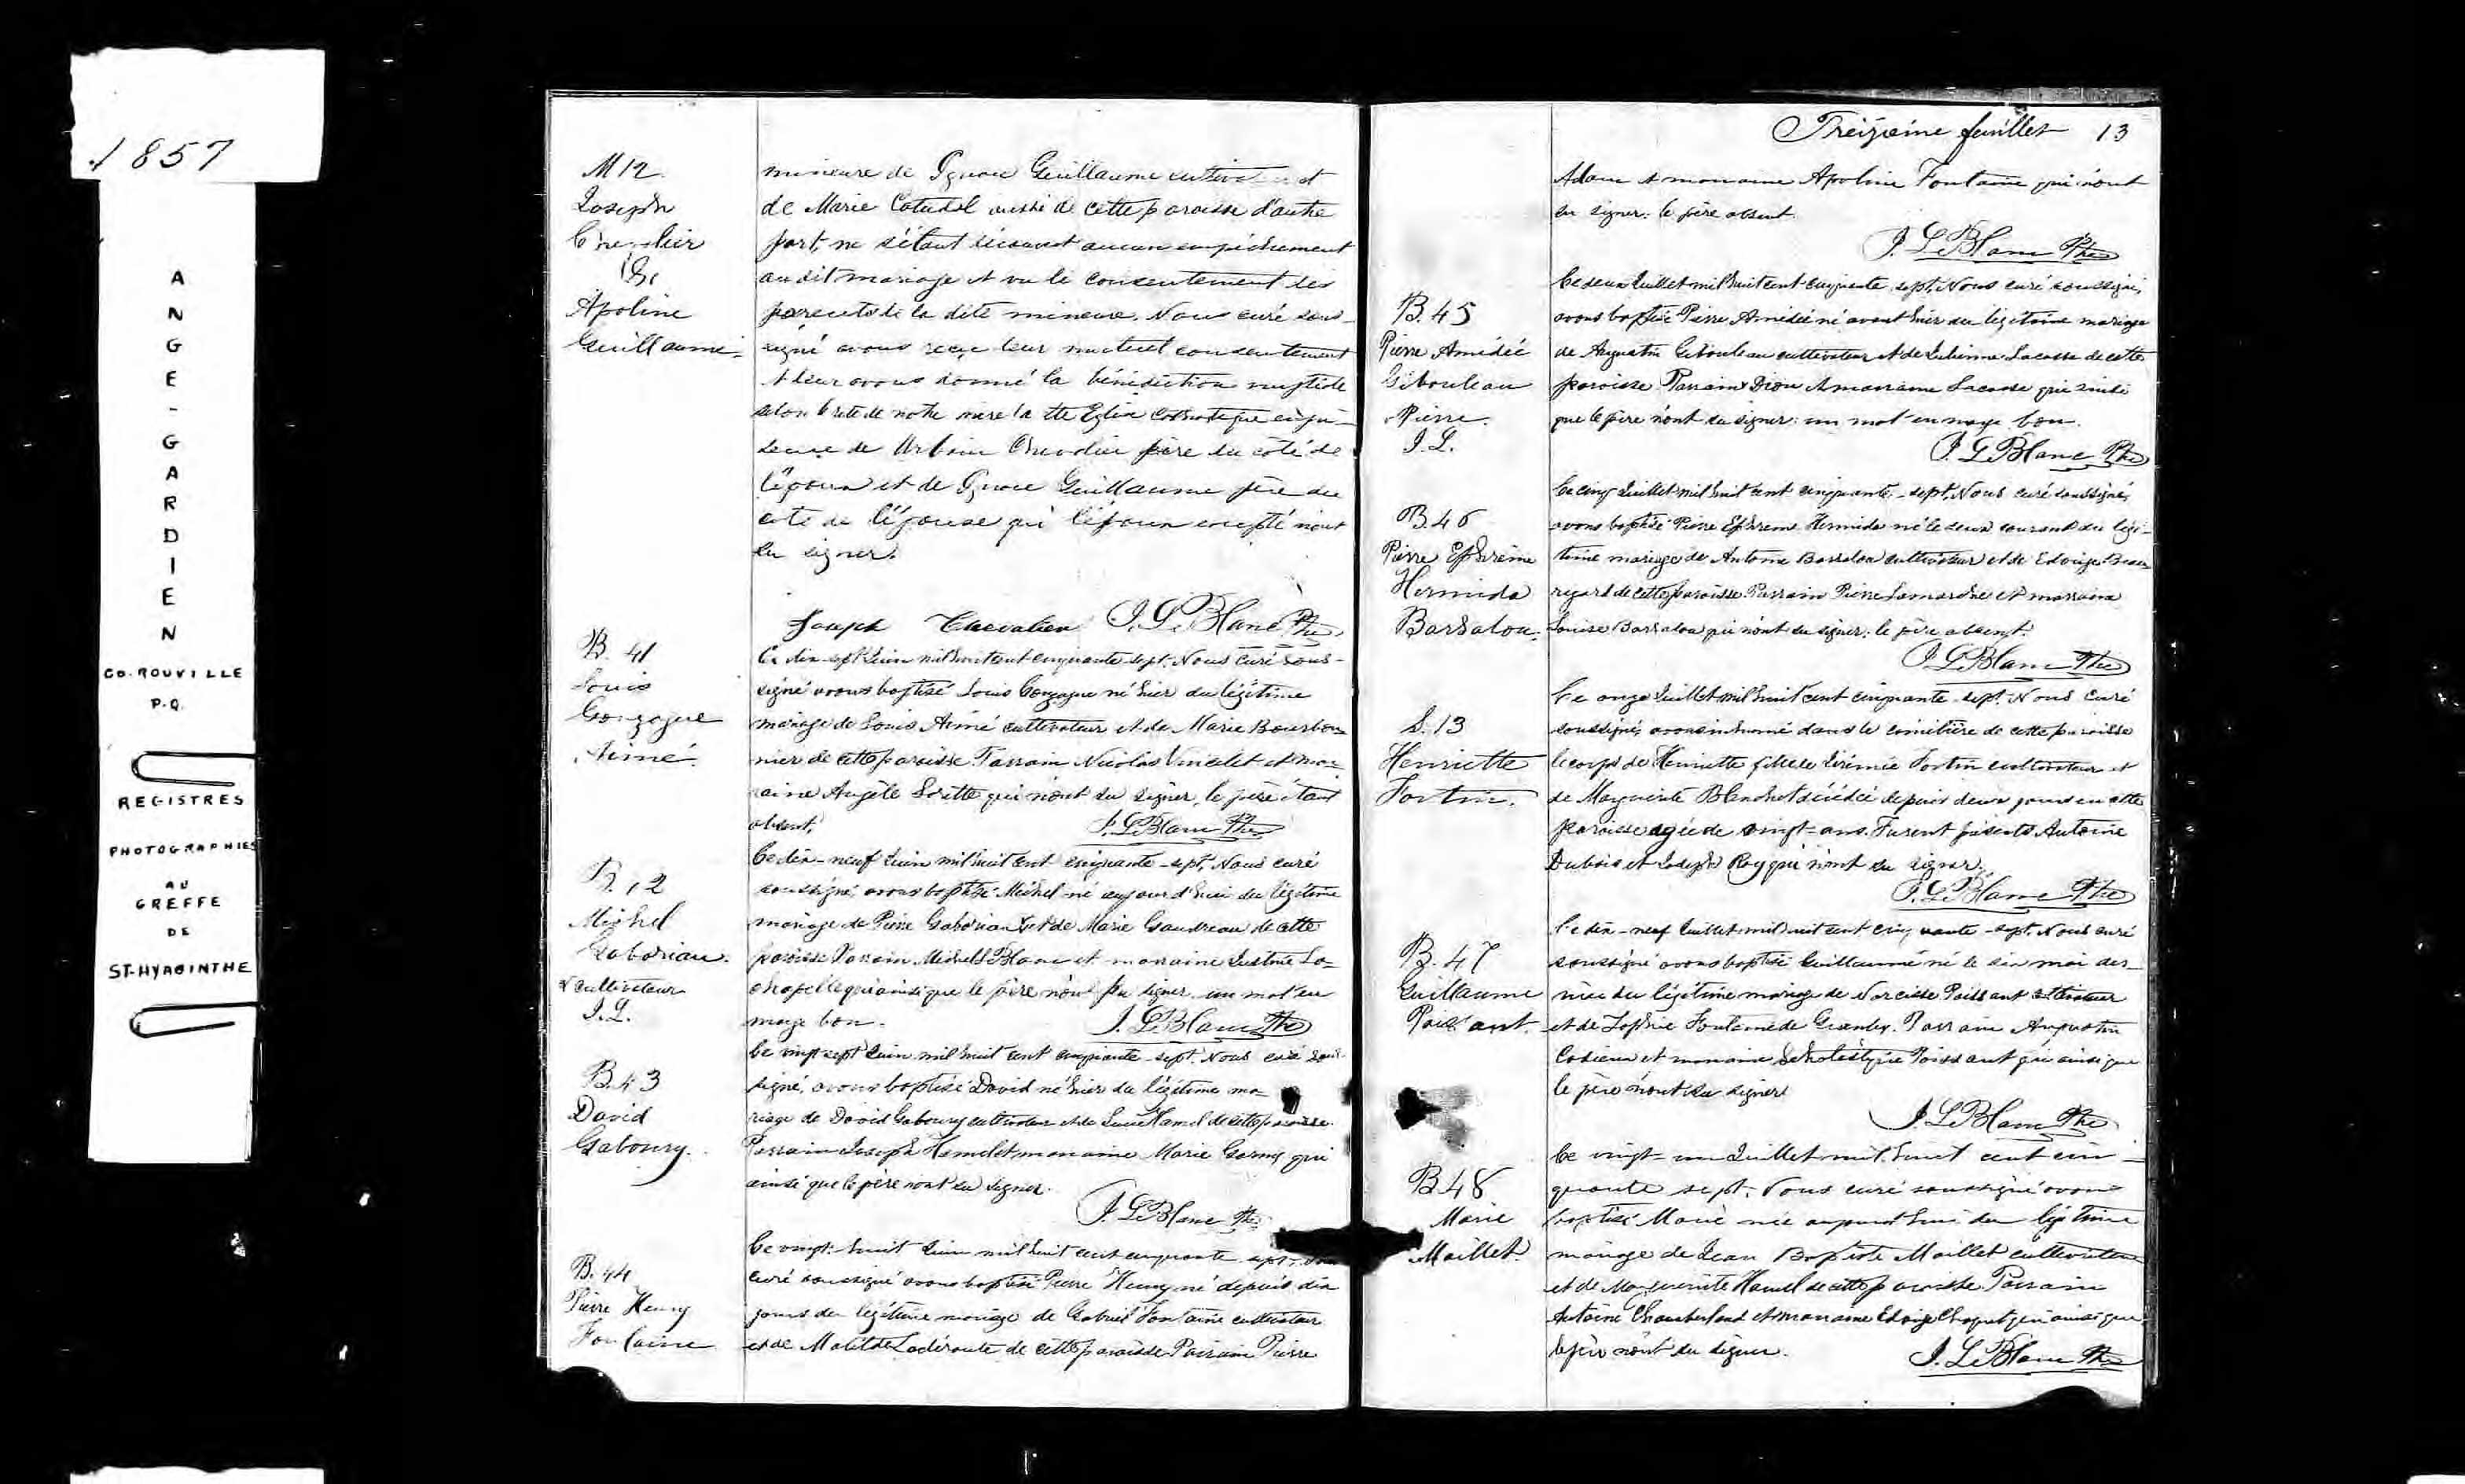 1857
ANGE-GARDIEN
CO. ROUVILLE
P.Q.
REGISTRES
PHOTOGRAPHIES
AU
GREFFE
DE
ST-HYACINTHE
M 12.
Joseph
&
Apoline
Guillaume
mineure de Ignace Guillaume et
de Marie Catudel aussi de cette paroisse d'autre
part, ne s'étant découvert aucun empêchement
au dit mariage et vu le consentement des
parents de la dite mineure, Nous curé sous-
signé avons reçu leur mutuel consentement
et leur avons donné la bénédiction nuptiale
selon le rite de notre mère la Ste Eglise Catholique en pré-
sence de Urbain Chevalier père du côté de
l'époux et de Ignace Guillaume père du
coté de l'épouse qui l'époux excepté n'ont
su signer.
Joseph Chevalier J. LeBlanc Ptre
B. 41
Louis
Gonzague
Aimé.
Ce dix-sept Juin mil huit cent cinquante-sept. Nous curé sous-
signé avons baptisé Louis Gonzague né hier du légitime
mariage de Louis Aimé cultivateur et de Marie Bourbon-
nier de cette paroisse. Parrain Nicolas Vincelet et mar-
raine Angèle qui n'ont su signer, le père étant
absent.
J. LeBlanc Ptre
B. 42
Michel
Gaboriau.
x cultivateur
J. L.
Ce dix-neuf Juin mil huit cent cinquante-sept. Nous curé
soussigné, avons baptisé Michel né aujourd'hui du légitime
mariage de Pierre Gaboriau x et de Marie Gaudreau de cette
paroisse Parrain Michel LeBlanc et marraine Justine La-
chapelle qui ainsi que le père n'ont pu signer un mot en
marge bon.
J. LeBlanc Ptre
B. 43
David
Gaboury.
Ce vingt sept Juin mil huit cent cinquante-sept. Nous curé sous-
signé, avons baptisé David né hier du légitime ma-
riage de David Gaboury cultivateur et de Lucie Hamel de cette paroisse.
Parrain Joseph Hamel et marraine Marie qui
ainsi que le père n'ont su signer.
J. LeBlanc Ptre
B. 44
Pierre Henry
Fontaine
Ce vingt-huit Juin mil huit cent cinquante sept. Nous
curé soussigné avons baptisé Pierre Henry né depuis dix
jours du légitime mariage de Gabriel Fontaine cultivateur
et de Matilde Ladéroute de cette paroisse Parrain Pierre
Treizième feuillet 13
Adam et marraine Apoline Fontaine qui n'ont
su signer: le père absent.
J. LeBlanc Ptre
B. 45
Pierre Amédée
Gibouleau
Pierre.
J. L.
Ce deux Juillet mil huit cent cinquante sept. Nous curé soussigné,
avons baptisé Pierre Amédée né avant hier du légitime mariage
de Augustin Gibouleau cultivateur et de Julienne Lacasse de cette
paroisse Parrain x Dion et marraine Lacasse qui ainsi
que le père n'ont su signer: un mot en marge bon.
J. LeBlanc Ptre
B. 46
Pierre Ephrème
Hermida
Barsalou.
Ce cinq Juillet mil huit cent cinquante-sept. Nous curé soussigné,
avons baptisé Pierre Ephreme Hermida né le deux courant du légi-
time mariage de Antoine Barsalou cultivateur et de Edwige Beau-
regard de cette paroisse. Parrain Pierre Lamarche et marraine
Louise Barsalou qui n'ont su signer: le père absent.
J. LeBlanc Ptre
S. 13
Henriette
Fortin.
Ce onze Juillet mil huit cent cinquante-sept. Nous curé
soussigné, avons inhumé dans le cimetière de cette paroisse
le corps de Henriette fille de Jérémie Fortin cultivateur et
de Marguerite Blanchet décédée depuis deux jours en cette
paroisse agée de vingt-ans. Furent présents Antoine
Dubois et Joseph Roy qui n'ont su signer.
J. LeBlanc Ptre
B. 47
Guillaume
Poissant.
Ce dix-neuf Juillet mil huit cent cinquante-sept. Nous curé
soussigné avons baptisé Guillaume né le six mai der-
nier du légitime mariage de Narcisse Poissant cultivateur
et de Sophie Fontaine de Granby. Parrain Augustin
et marraine Scholastique Poissant qui ainsi que
le père n'ont su signer
J. LeBlanc Ptre
B. 48
Marie
Maillet.
Ce vingt-un Juillet mil huit cent cin-
quante sept. Nous curé soussigné avons
baptisé Marie née aujourd'hui du légitime
mariage de Jean Baptiste Maillet cultivateur
et de Marguerite Hamel de cette paroisse Parrain
Antoine Chamberland et marraine Edwige Choquet qui ainsi que
le père n'ont su signer.
J. LeBlanc Ptre